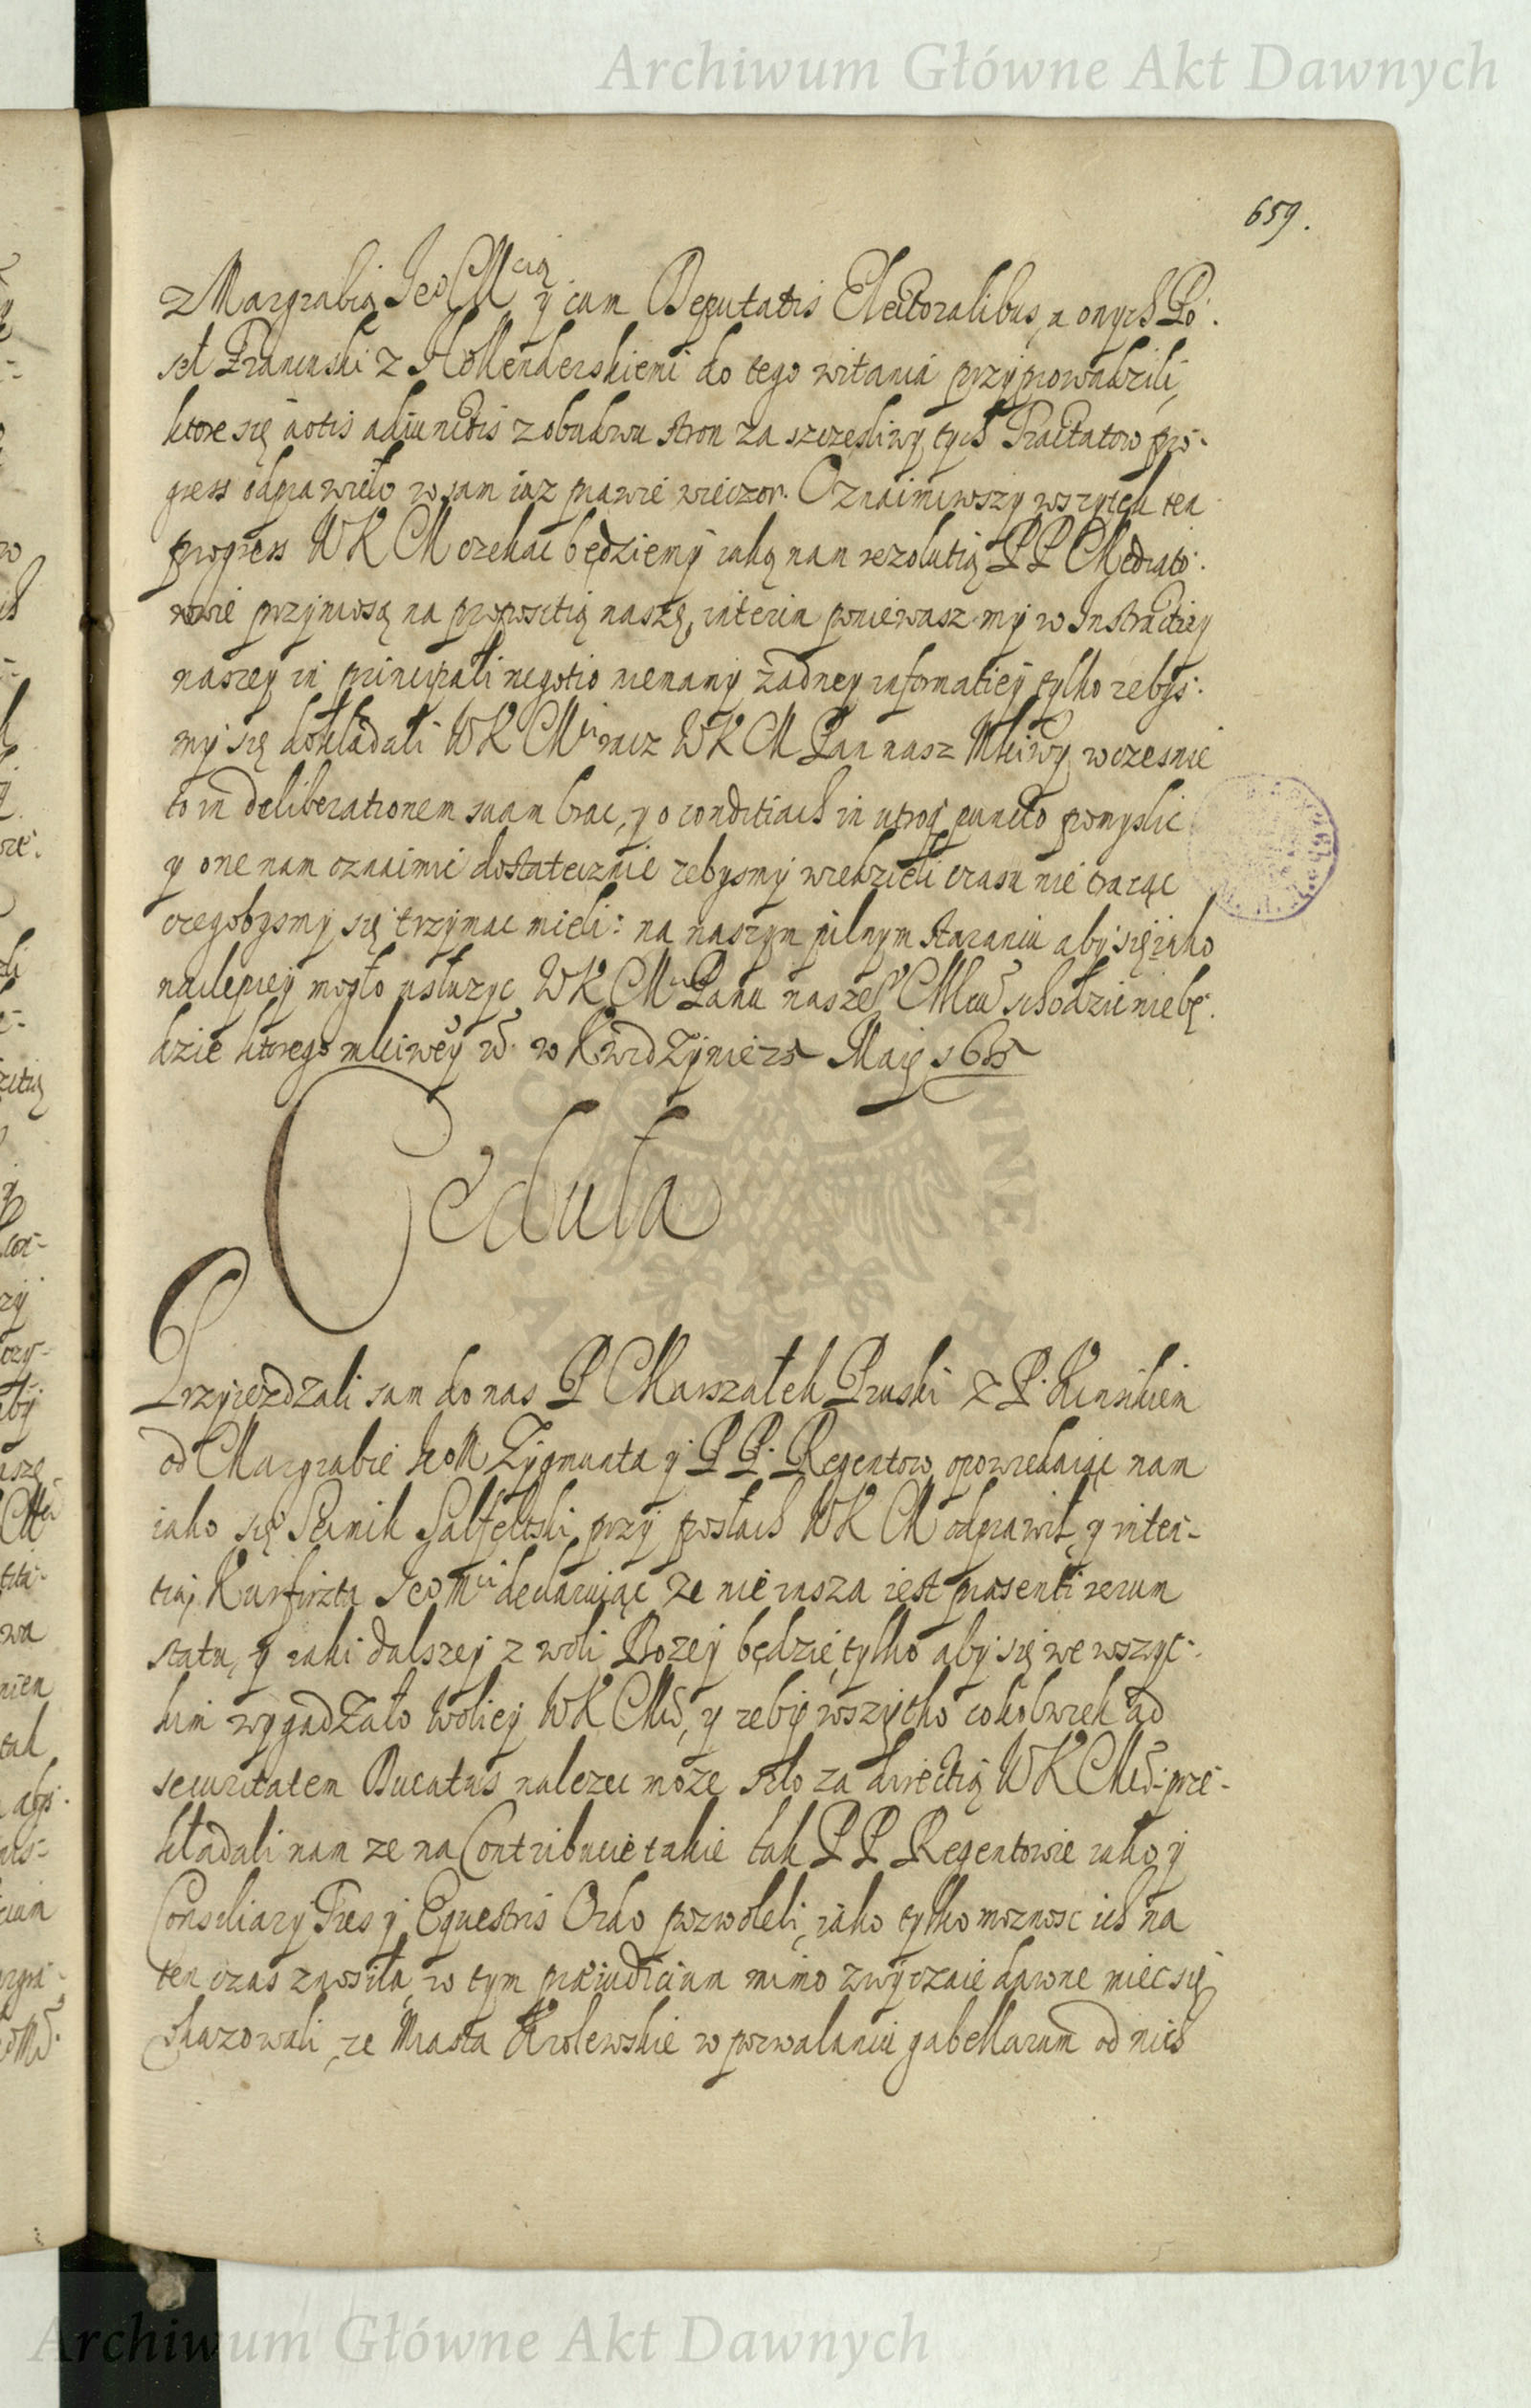 Archiwum Główne Akt Dawnych
659.
z Margrabią Jeo Mcią y cum Deputatis Electoralibus, a onych Po-
seł Francuski z Hollenderskiemi do tego witania przyprowadzili,
ktore się votis adiunctis z obudwu stron za szczęsliwy tych Tractatow pro-
gress odprawiło w sam iuz prawie wieczor. Oznaimiwszy wszytek ten
progress WKM czekac będziemy iaką nam rezolutią PP Mediato-
rowie przyniosą na propositią naszę, interim poniewasz my w Instructiey
naszey in principali negotio niemamy zadney informatiey tylko zebys-
my się dokładali WKMci racz WKM Pan nasz Mciwy wczesnie
to in deliberationem suam brac, y o conditiach in utroq puncto pomyslic
y one nam oznaimic dostatecznie zebysmy wiedzieli czasu nie tracąc
czegobysmy się trzymac mieli: na naszym pilnym staraniu aby się iako
nailepiey mogło usłuzyc WKMci Panu naszeo Mciu schodzic niebę-
dzie ktorego mciwey w Kwidzyniu 25 Maij 1635
Ceduła
Przyiezdzali sam do nas P Marszałek Pruski z P. Kunsikiem
od Margrabie JeoM Zygmunta y PP. Regentow, opowiedaiąc nam
iako się Seimik Salfeltski przy posłach WKM odprawił, y inten-
tią Kurfirszta Jeo Mci declaruiąc ze nie insza iest praesenti rerum
statu, y iaki dalszey z woli Bozey będzie, tylko aby się we wszyt-
kim wygadzało woliey WKMci, y zeby wszytko cokolwiek ad
securitatem Ducatus nalezec moze szło za directią WKMci: prze-
kładali nam ze na Contributie takie tak PP Regentowie iako y
Consiliarij Tres y Equestris Ordo pozwoleli, iako tylko moznosc ich na
ten czas znosiła, w tym praeiudicium mimo zwyczaie dawne miec się
skazowali, ze Miasta Krolewskie w pozwalaniu gabellarum od nich
Archiwum Główne Akt Dawnych